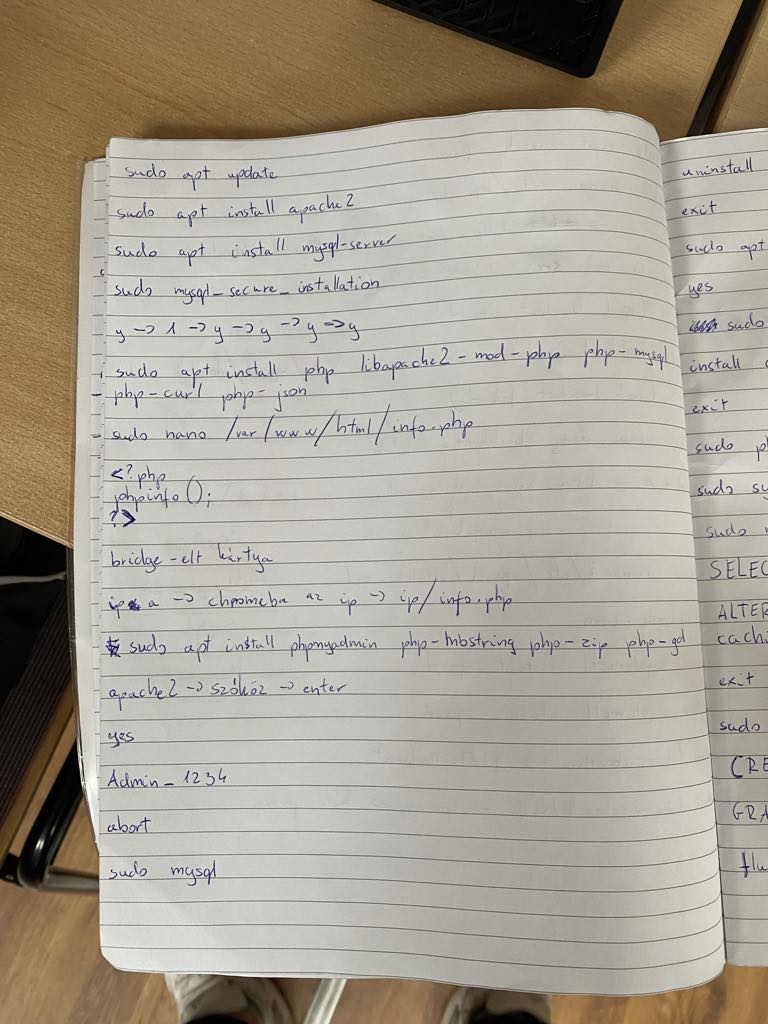 sudo apt update
sudo apt install apache2
sudo apt install mysql-server
sudo mysql_secure_installation
y -> 1 -> y -> y -> y -> y
sudo apt install php libapache2-mod-php php-mysql
php-curl php-json
sudo nano /var/www/html/info.php
<?php
phpinfo();
?>
bridge-elt kártya
ip a -> chromeba az ip -> ip/info.php
sudo apt install phpmyadmin php-mbstring php-zip php-gd
apache2 -> szóköz -> enter
yes
Admin_1234
abort
sudo mysql
uninstall
exit
sudo apt
yes
sudo
install
exit
sudo
sudo
sudo
SELEC
ALTER
cachi
exit
sudo
CRE
GRA
flu